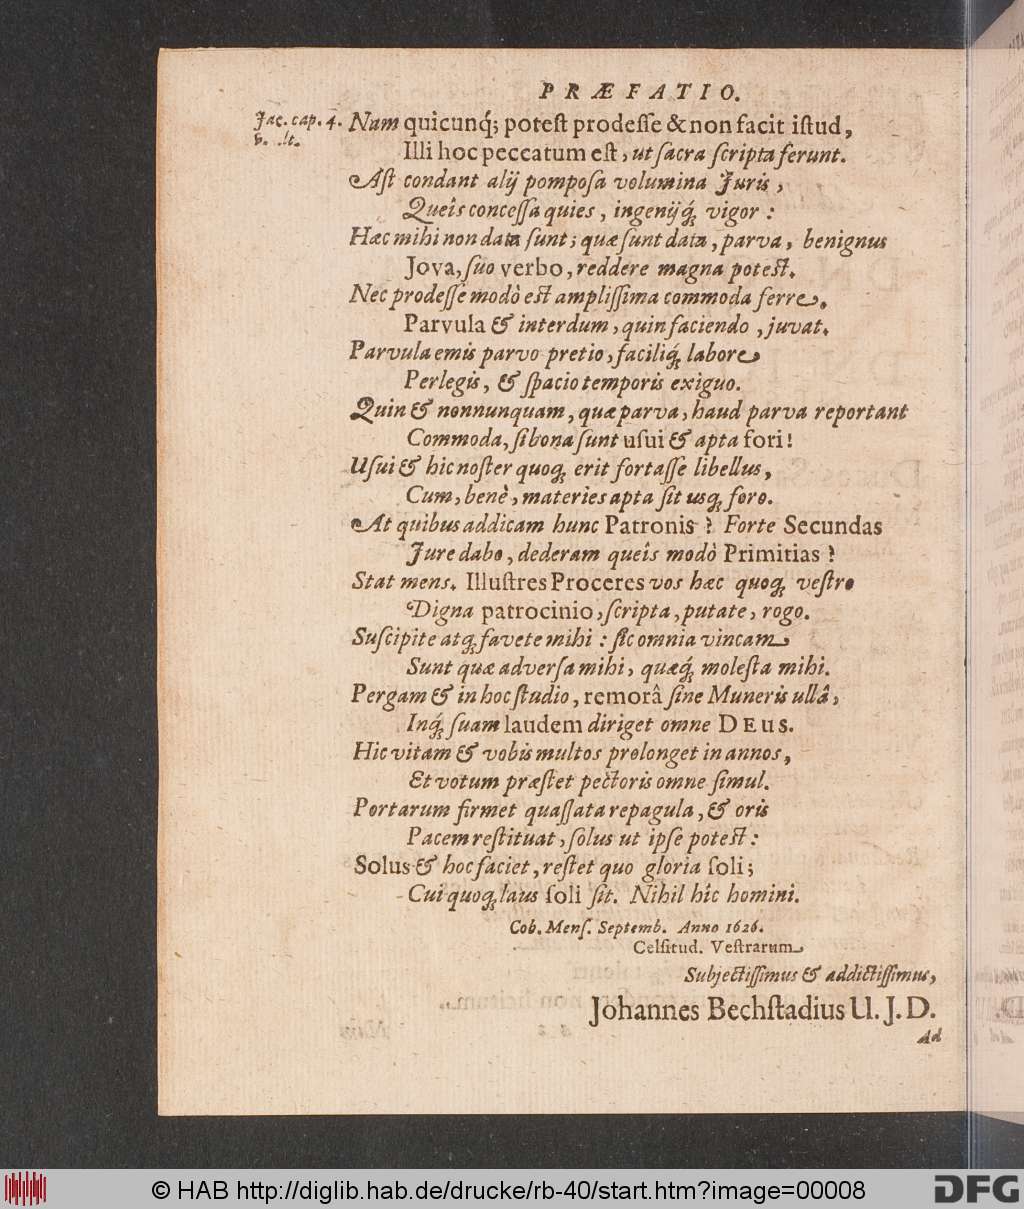 PRÆFATIO.
Jac. cap. 4. Nam quicunq́; potest prodesse & non facit istud,
Illi hoc peccatum est, ut sacra scripta ferunt.
Ast condant alij pomposa volumina Juris,
Queîs concessa quies, ingenijq́; vigor:
Hæc mihi non data sunt; quæ sunt data, parva, benignus
Jova, suo verbo, reddere magna potest.
Nec prodesse modò est amplissima commoda ferre.
Parvula & interdum, quin faciendo, juvat.
Parvula emis parvo pretio, faciliq́; labore
Perlegis, & spacio temporis exiguo.
Quin & nonnunquam, quæ parva, haud parva reportant
Commoda, si bona sunt usui & apta fori!
Usui & hic noster quoq; erit fortasse libellus,
Cum, benè, materies apta sit usq; foro.
At quibus addicam hunc Patronis? Forte Secundas
Jure dabo, dederam queîs modò Primitias?
Stat mens. Illustres Proceres vos hæc quoq; vestro
Digna patrocinio, scripta, putate, rogo.
Suscipite atq; favete mihi: sic omnia vincam
Sunt quæ adversa mihi, quæq́; molesta mihi.
Pergam & in hoc studio, remorâ sine Muneris ullâ,
Inq́; suam laudem diriget omne DEUS.
Hic vitam & vobis multos prolonget in annos,
Et votum præstet pectoris omne simul.
Portarum firmet quassata repagula, & oris
Pacem restituat, solus ut ipse potest:
Solus & hoc faciet, restet quo gloria soli;
Cui quoq; laus soli sit. Nihil hîc homini.
Cob. Mens. Septemb. Anno 1626.
Celsitud. Vestrarum
Subjectissimus & addictissimus,
Johannes Bechstadius U. J. D.
Ad
© HAB http://diglib.hab.de/drucke/rb-40/start.htm?image=00008
DFG